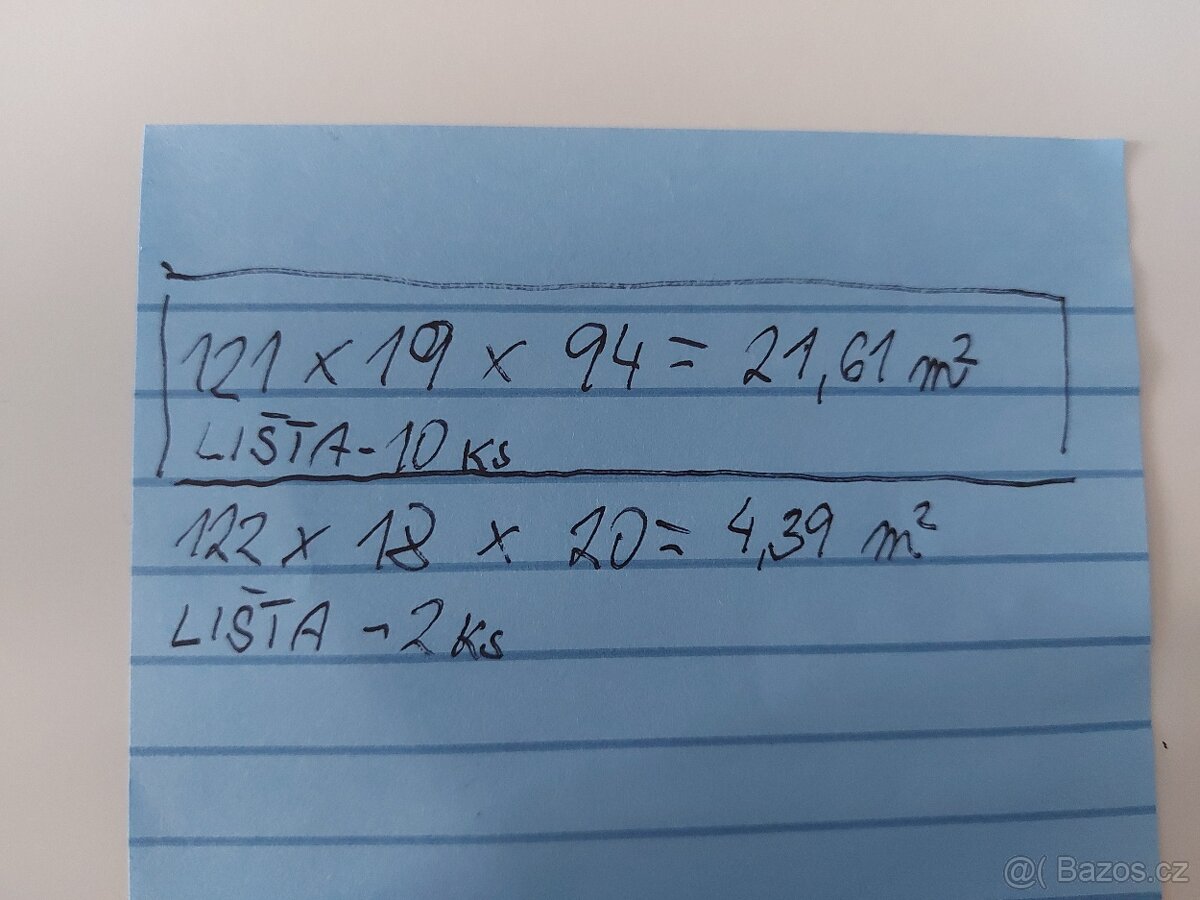 121 x 19 x 94 = 21,61 m²
LIŠTA - 10 ks
122 x 18 x 20 = 4,39 m²
LIŠTA - 2 ks
@( Bazos.cz